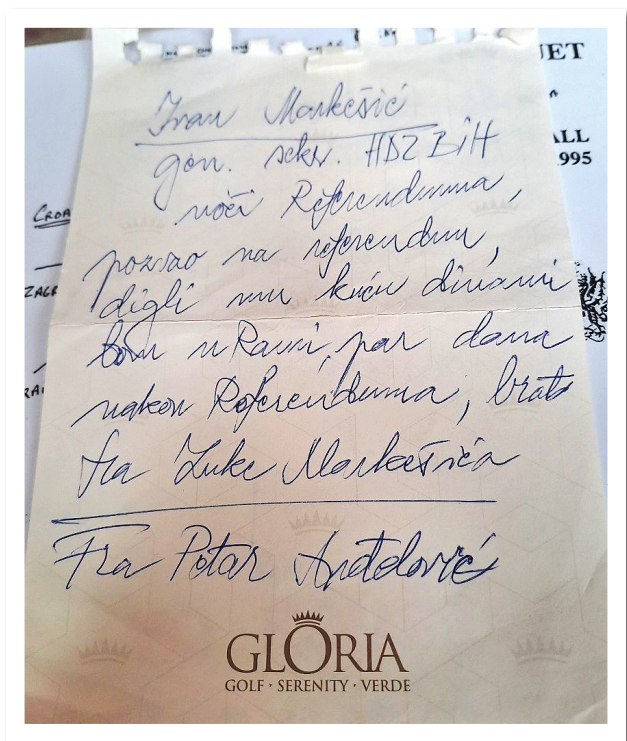 JET
ALL
1995
CROA
ZAGR
RA
Ivan Markešić
gen. sekr. HDZ BiH
uoči Referenduma,
pozvao na referendum,
digli mu kuću dinami
tom u Rami, par dana
nakon Referenduma, brat
fra Luke Markešića
Fra Petar Anđelović
GLORIA
GOLF · SERENITY · VERDE